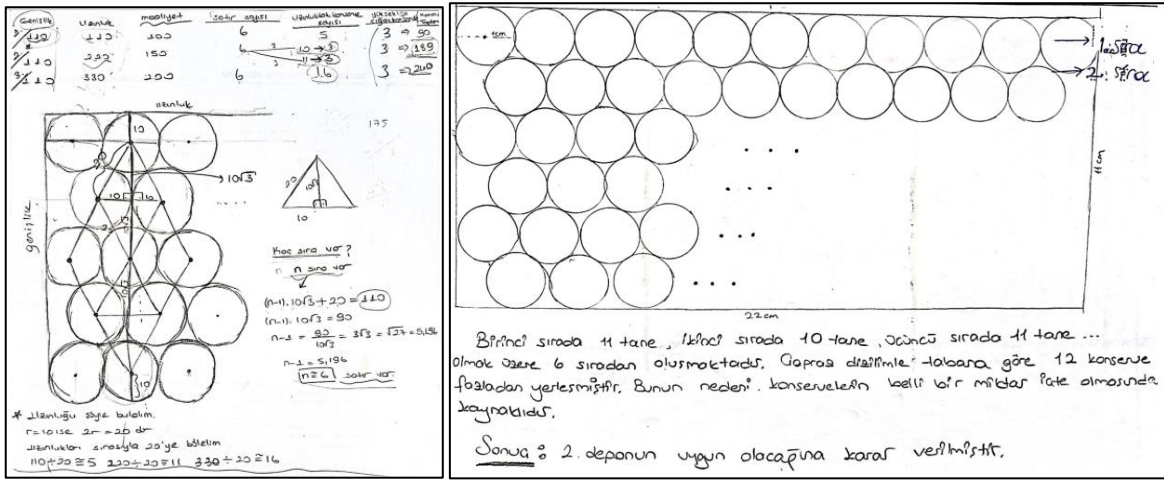 Genişlik Uzunluk maaliyet satır sayısı Uzunluktaki konserve sayısı yükseklik Konserve
1. 110 110 100 6 5 3 ⇒ 90
2. 110 220 150 6 10 → 3 11 → 3 3 ⇒ 189
3. 110 330 200 6 16 3 ⇒
uzunluk
175
genişlik
10
20
10√3
10 10
20 10√3
10
10
Kaç sıra var?
n sıra var
(n-1).10√3 + 20 = 110
(n-1).10√3 = 90
n-1 = 90/10√3 = 3√3 = √27 = 5,196
n-1 = 5,196
n ≅ 6 satır var.
* Uzunluğu şöyle bulalım.
r=10 ise 2r=20 dr
uzunlukları sırasıyla 20'ye bölelim
110÷20≅5 220÷20≅11 330÷20≅16
1cm
→ 1. sıra
→ 2. sıra
11cm
22cm
Birinci sırada 11 tane, ikinci sırada 10 tane, üçüncü sırada 11 tane ...
olmak üzere 6 sıradan oluşmaktadır. Çapraz dizilimle tabana göre 12 konserve
fazladan yerleşmiştir. Bunun nedeni konservelerin belli bir miktar içte olmasında
kaynaklıdır.
Sonuç: 2. deponun uygun olacağına karar verilmiştir.